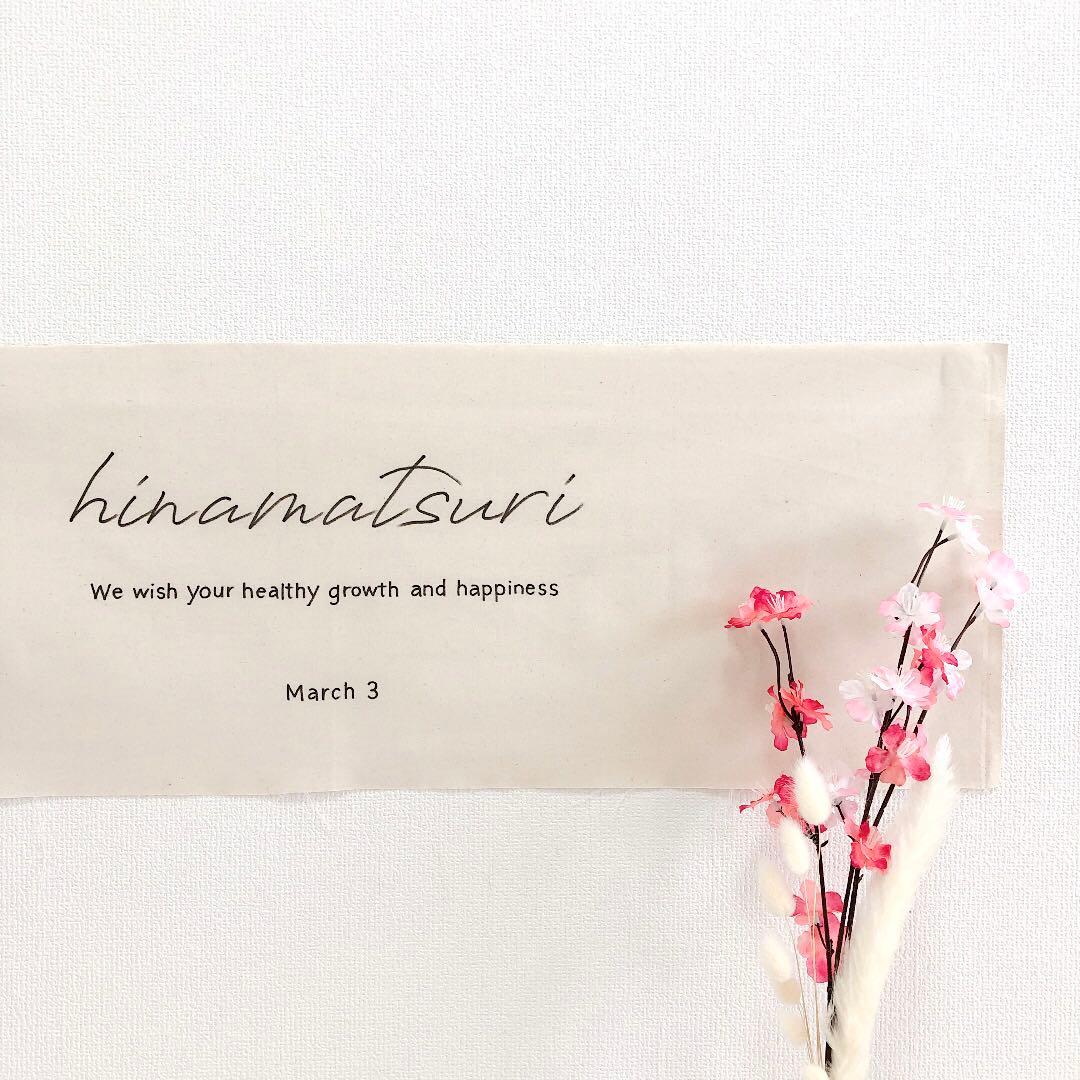 hinamatsuri
We wish your healthy growth and happiness
March 3